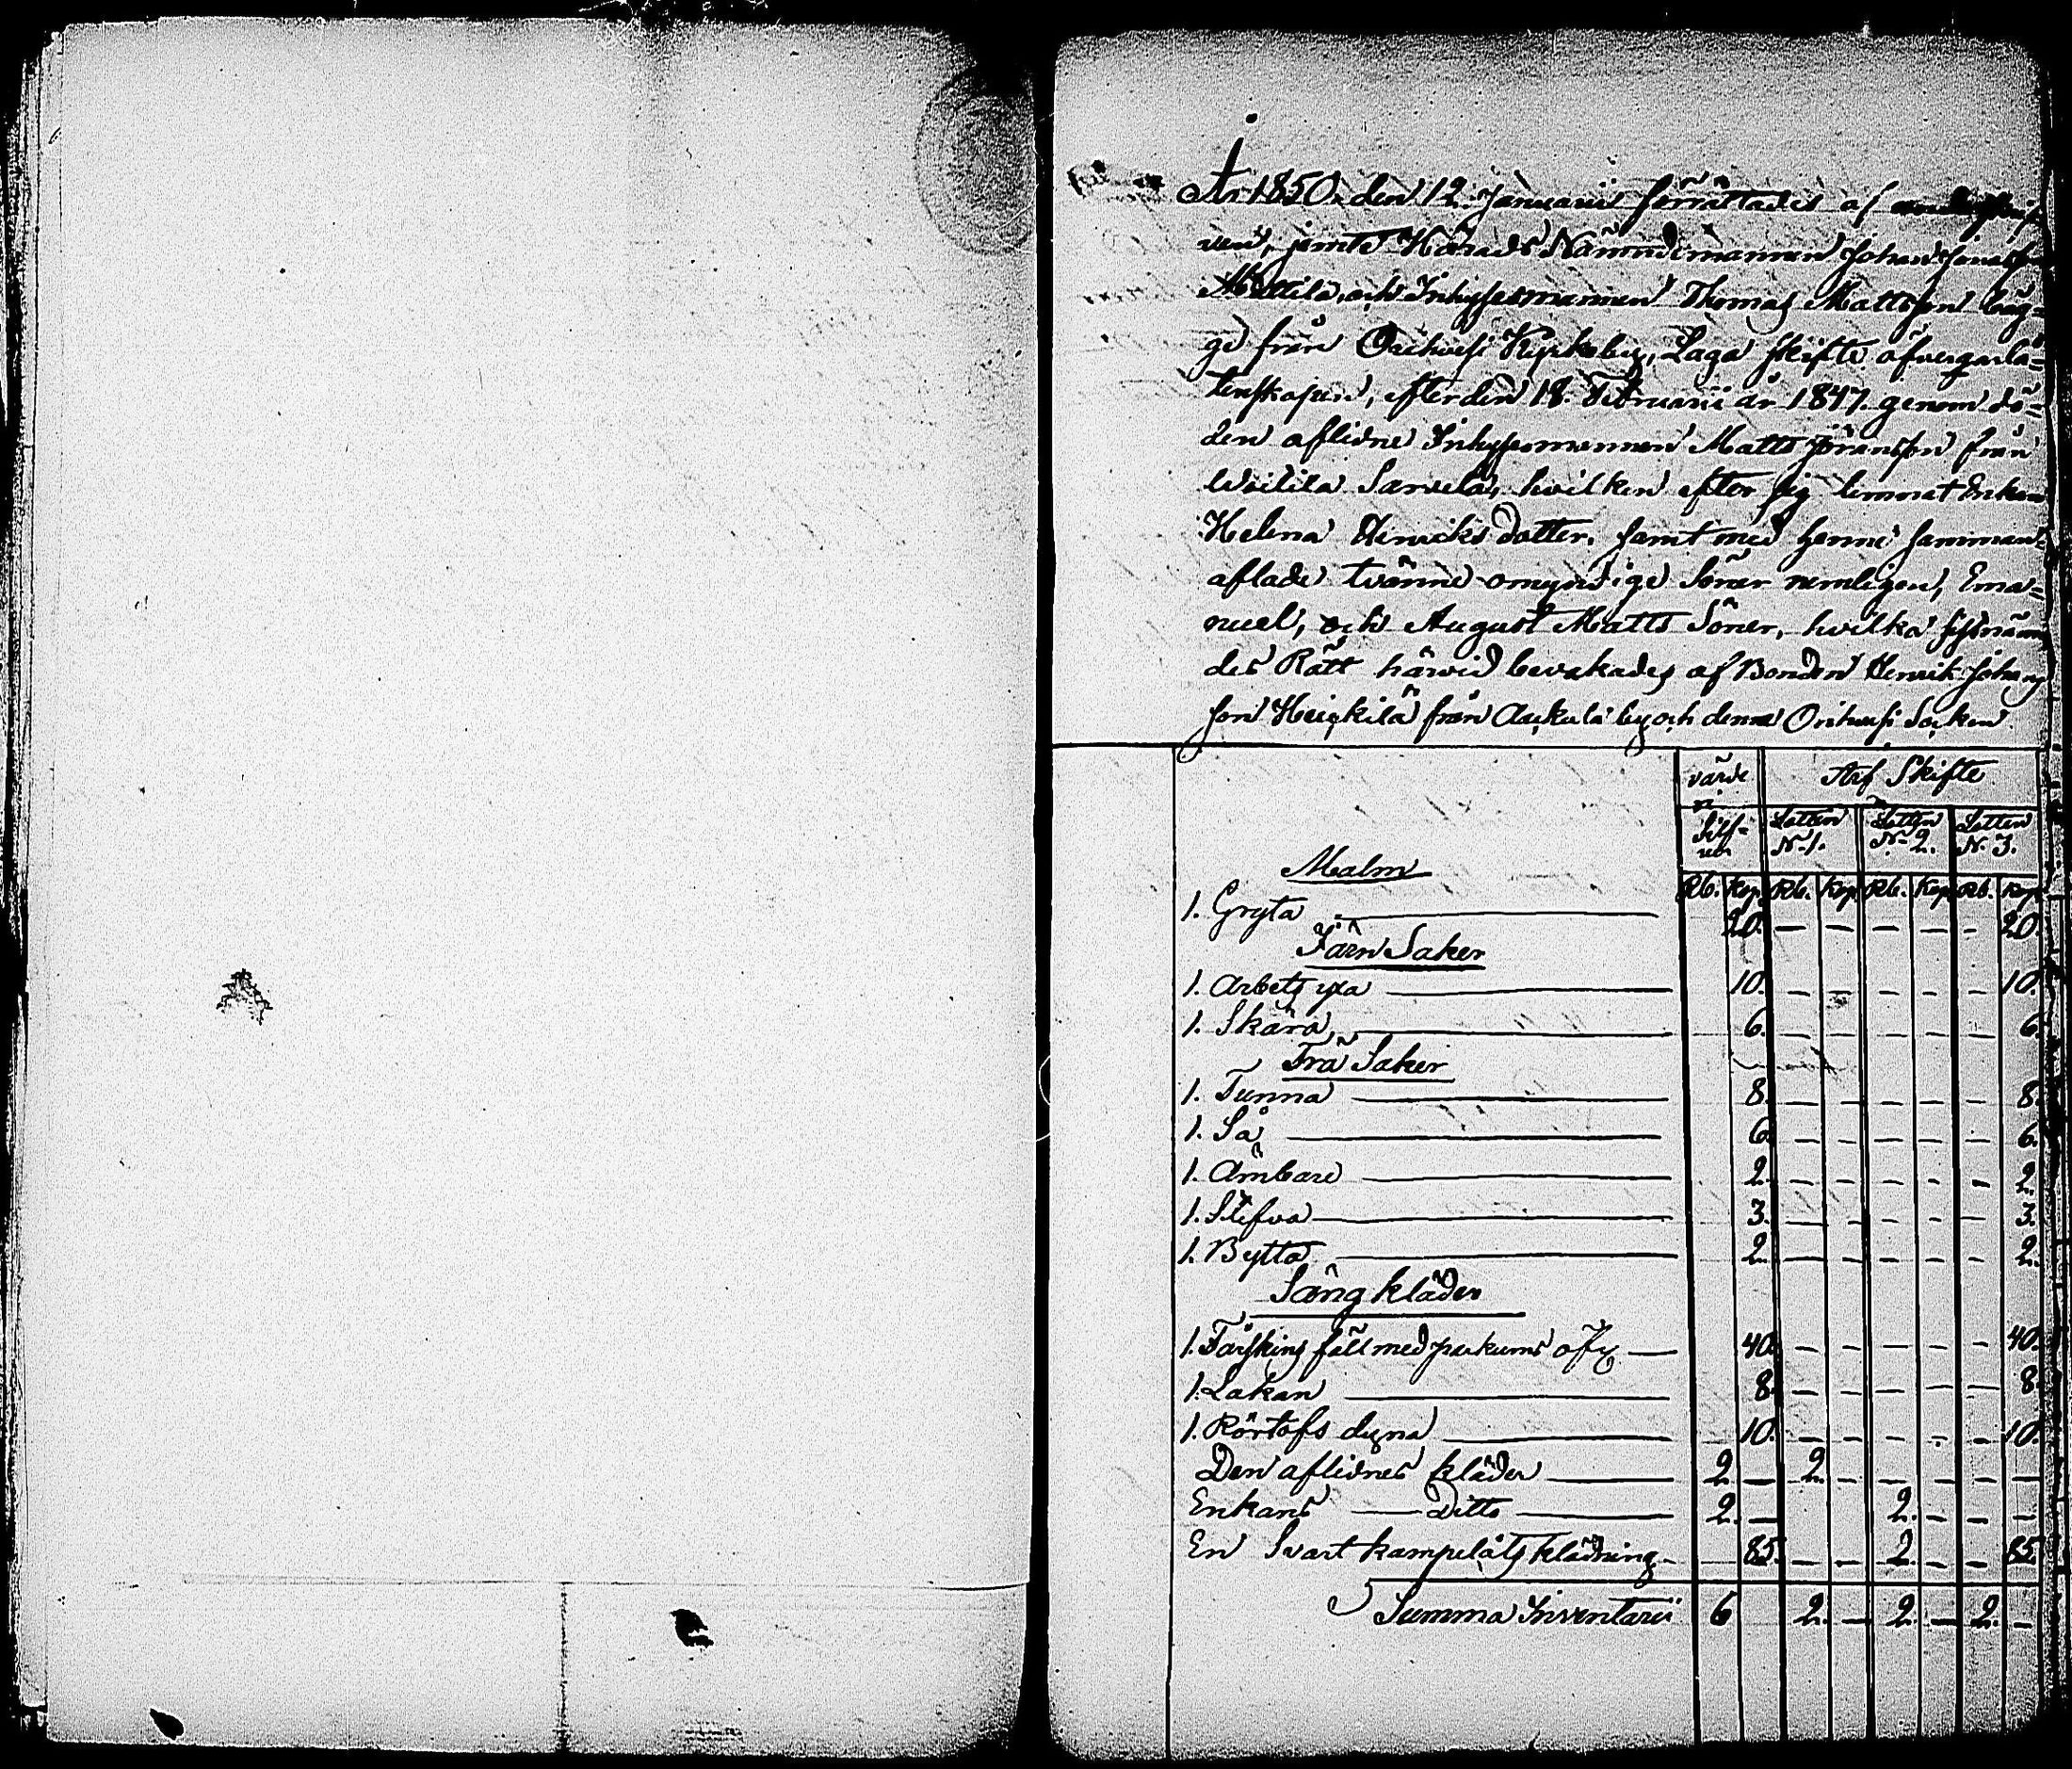 År 1850. den 12. Januarii förrättades af underskrif-
ven, jemte Härads Nämndemannen Johan Jonasson
Mattila, och Inhysesmannen Thomas Mattsson bäg-
ge från Orihvesi Kyrkoby, Laga skifte öfver qvarlå-
tenskapen, efter den 18. Februarii år 1847. genom dö-
den aflidne Inhysesmannen Matts Göransson från
Sarvela, hvilken efter sig lemnat Enkan
Helena Henricks dotter, samt med henne samman-
aflade tvänne omyndige Söner nemligen, Ema-
nuel, och August Matts Söner, hvilka sistnämn
des Rätt härvid bevakades af Bonden Henrik Johans
son Heickilä från by och denna Orihvesi Socken
värde Arf Skifte
i
Silf- Lotten Lotten Lotten
ver N. 1. N. 2. N. 3.
Malm
Rb. Kop. Rb. Kop. Rb. Kop. Rb. Kop.
1. Gryta 20. — — — — — 20.
Järn Saker
1. Arbets yxa 10. — — — — — 10.
1. Skära 6. — — — — — 6.
Trä Saker
1. Tunna 8. — — — — — 8.
1. Så 6. — — — — — 6.
1. Ämbare 2. — — — — — 2.
1. Stifva 3. — — — — — 3.
1. Bytta 2. — — — — — 2.
Säng kläder
1. Fårskins fäll med öfv. 40. — — — — — 40.
1. Lakan 8. — — — — — 8.
1. dyna 10. — — — — — 10.
Den aflidnes kläder 2 — 2 — — — — —
Enkans — Ditto 2. — 2. — — —
En Svart kampelåts klädning — 85. — — 2. — — 85.
Summa Inventarii 6 2. — 2. — 2. —